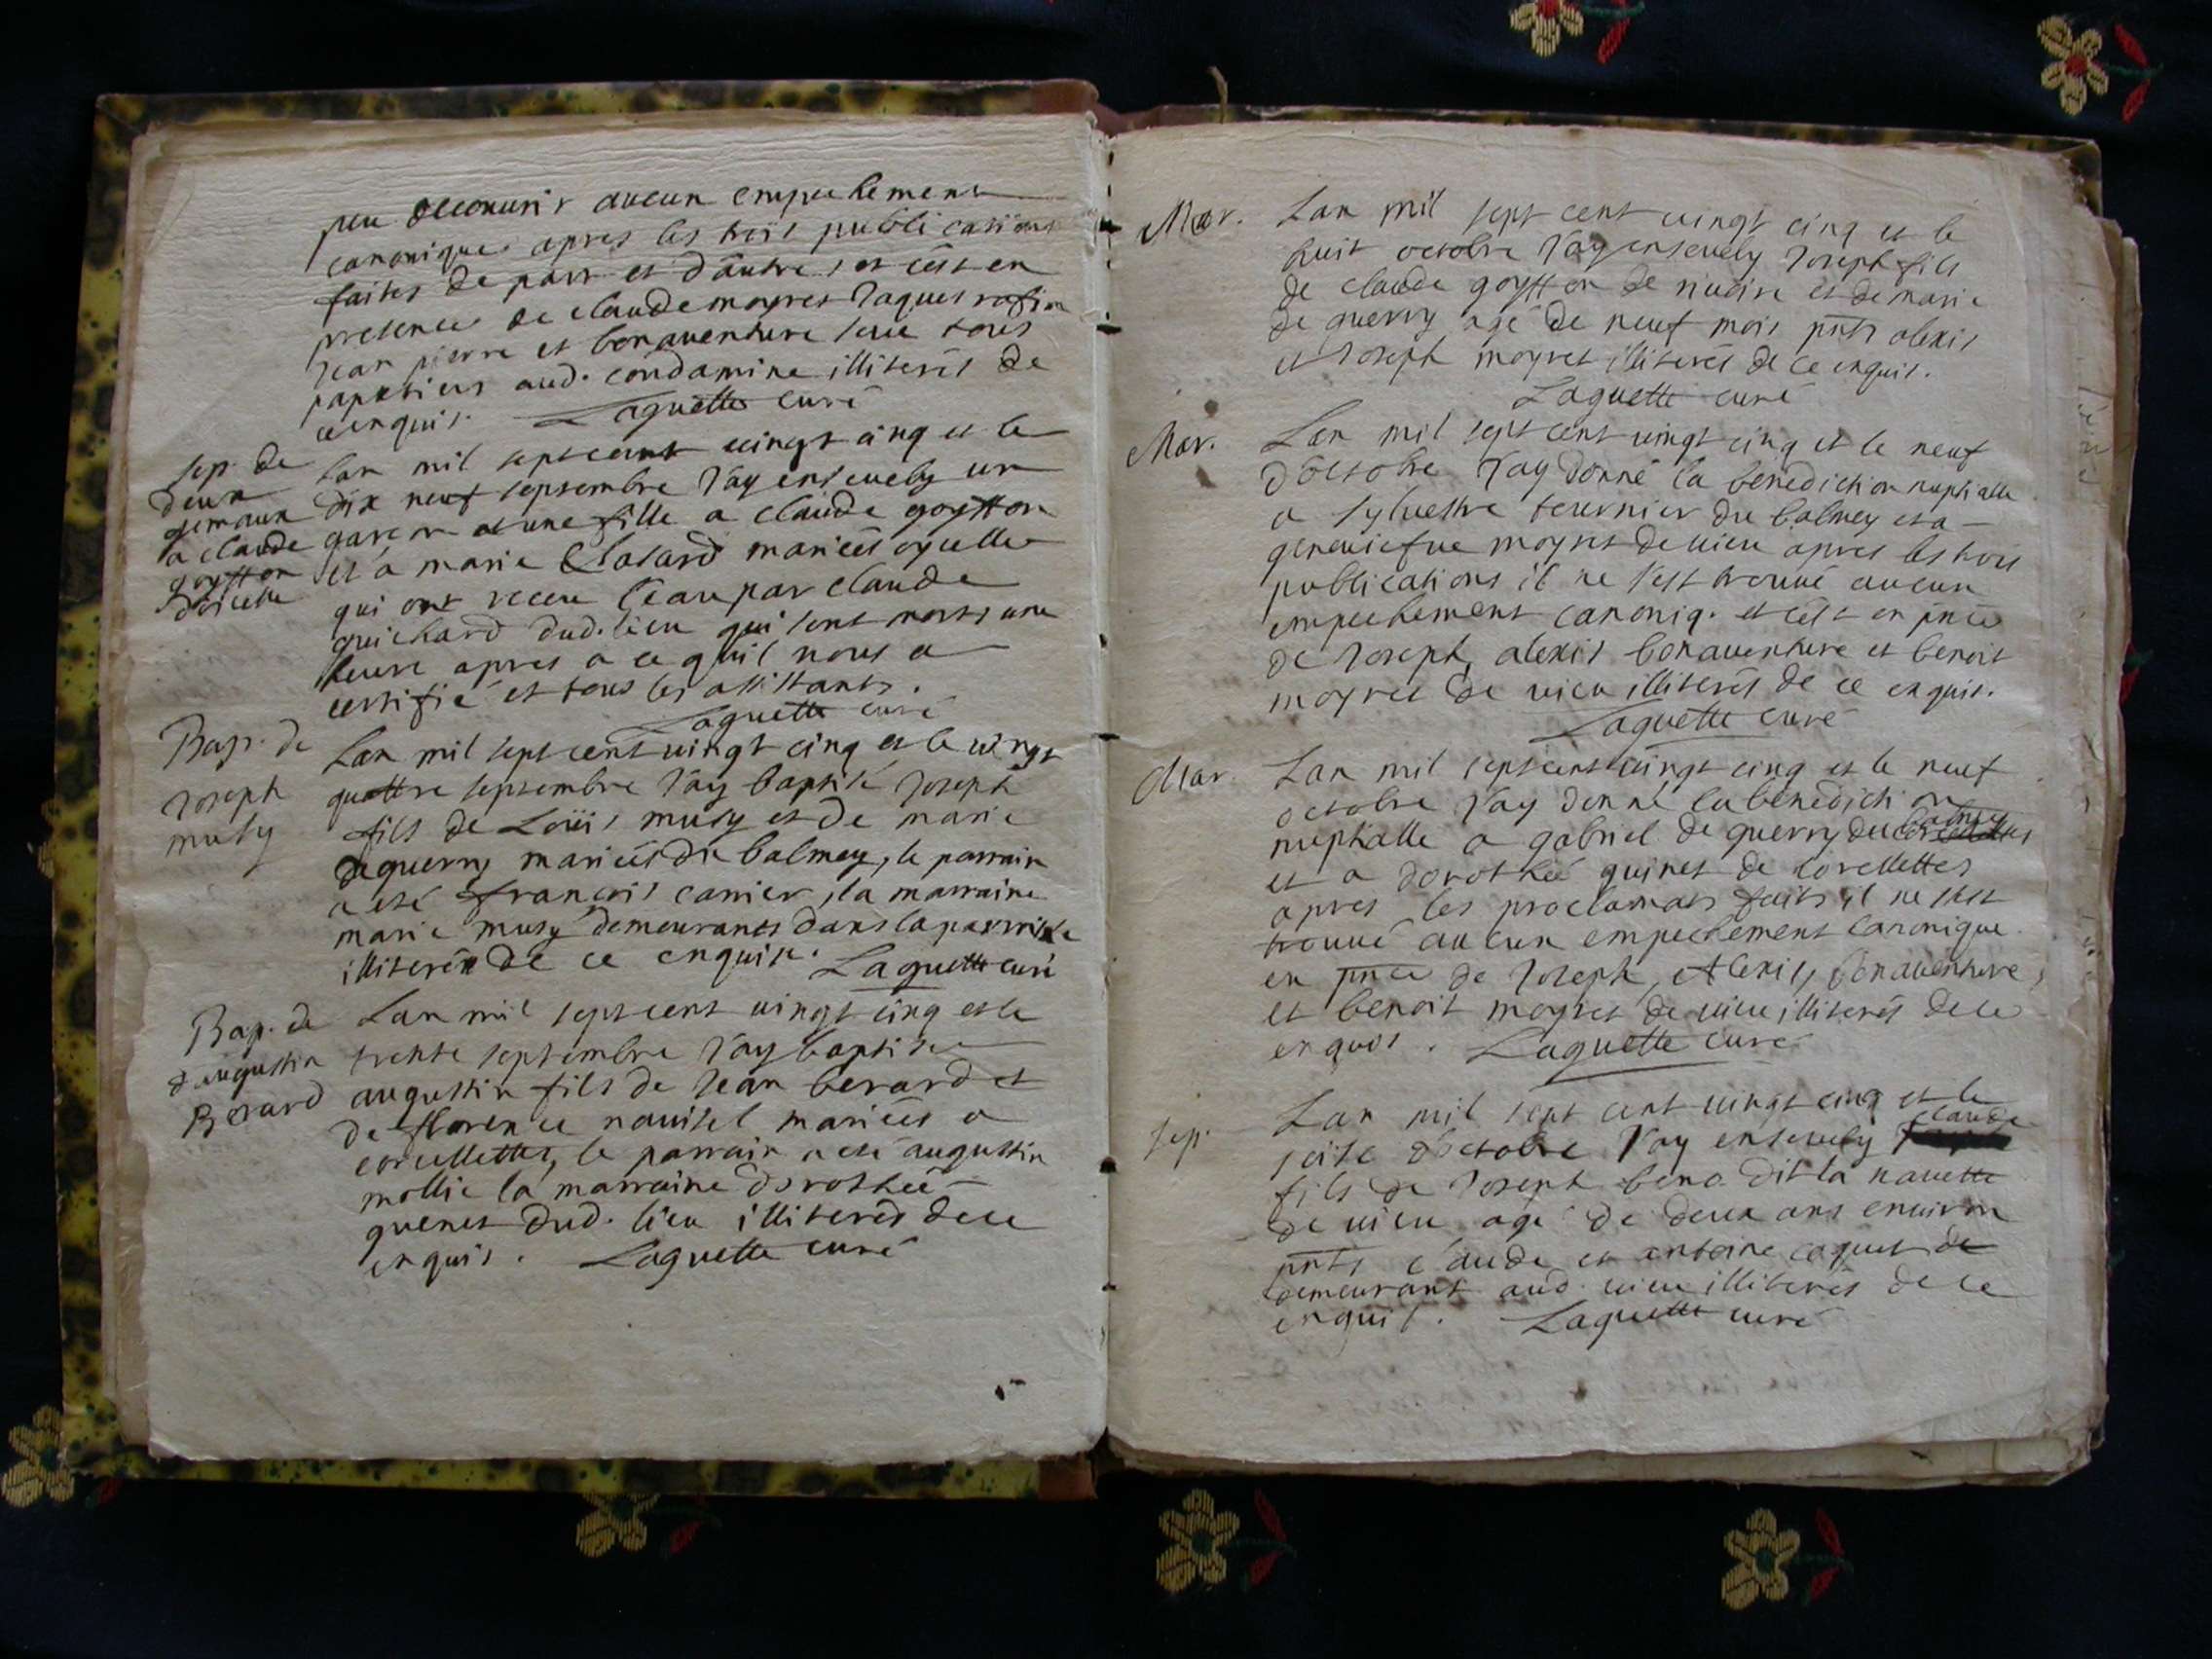 peu decouurir aucun empechement
canonique apres les trois publications
faites de part et d'autre, et c'est en
presence de claude moyret Jaques rafin
Jean pierre et bonauenture tous
papetiers aud. condamine illiterés de
ce enquis. Laguette curé
sep. de
deux
gemaux
a claude
goytton
d'oicelle
Lan mil sept cent uingt cinq et le
dix neuf septembre J'ay enseuely un
garcon et une fille a claude goytton
et a marie Chatard mariés oyselle
qui ont receu l'eau par claude
guichard dud. lieu qui sont morts une
heure apres a ce qu'il nous a
certifié et tous les assistants.
Laguette curé
Bap. de
Joseph
musy
Lan mil sept cent uingt cinq et le uingt
quattre septembre J'ay baptisé Joseph
fils de Loüis musy et de marie
deguerry mariés du balmey, le parrain
a esté françois carrier, la marraine
marie musy demeurants dans la parroisse
illiterés de ce enquis. Laguette curé
Bap. de
d'augustin
Berard
Lan mil sept cent uingt cinq et le
trente septembre J'ay baptisé
augustin fils de Jean berard et
de florence nauitel mariés a
corcellettes, le parrain a esté augustin
mollie la marraine dorothée
guenet dud. lieu illiterés de ce
enquis. Laguette curé
Mor.
Lan mil sept cent uingt cinq et le
huit octobre J'ay enseuely Joseph fils
de claude goytton de et de marie
de guerry agé de neuf mois pnts alexis
et Joseph moyret illiterés de ce enquis.
Laguette curé
Mar.
Lan mil sept cent uingt cinq et le neuf
d'octobre J'ay donné la benediction nuptialle
a syluestre tournier du balmey et a
geneuiefue moyret de uieu apres les trois
publications il ne s'est trouué aucun
empechement canoniq. et c'est en pnce
de Joseph, alexis bonauenture et benoit
moyret de uieu illiterés de ce enquis.
Laguette curé
Mar.
Lan mil sept cent uingt cinq et le neuf
octobre J'ay donné la benediction
nuptialle a gabriel de guerry du balmey
et a dorothée guinet de corcellettes
apres les proclamats faits il ne s'est
trouué aucun empechement canonique
en pnce de Joseph, Alexis, bonauenture,
et benoit moyret de uieu illiterés de ce
enquis. Laguette curé
sep.
Lan mil sept cent uingt cinq et le
seise d'octobre J'ay enseuely claude
fils de Joseph bena dit la nauette
de uieu agé de deux ans enuiron
pnts claude et antoine caquet de
demeurant aud. uieu illiterés de ce
enquis. Laguette curé